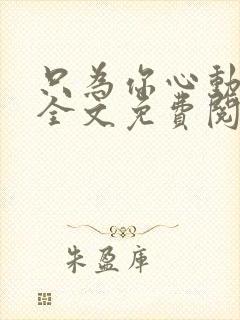 只為你心動
全文免費閱
朱盈庫